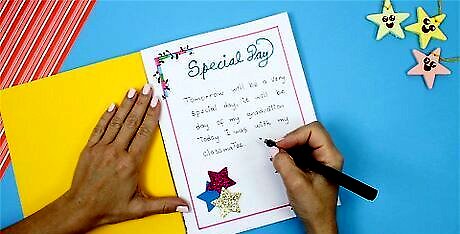 Special Day
Tomorrow will be a very
special day, it will be
day of my graduation
Today I was with my
classmates